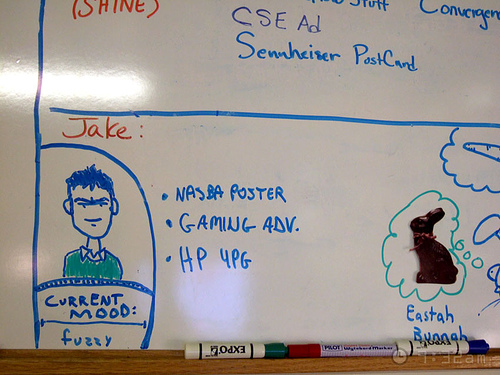 (SHINE)
Stuff
CSE Ad
Sennheiser PostCard
Jake:
• NASBA POSTER
• GAMING ADV.
• HP 4PG
CURRENT
MOOD:
fuzzy
Eastah
Bunnah
EXPO
PILOT Wyteboard Marker
EXPO